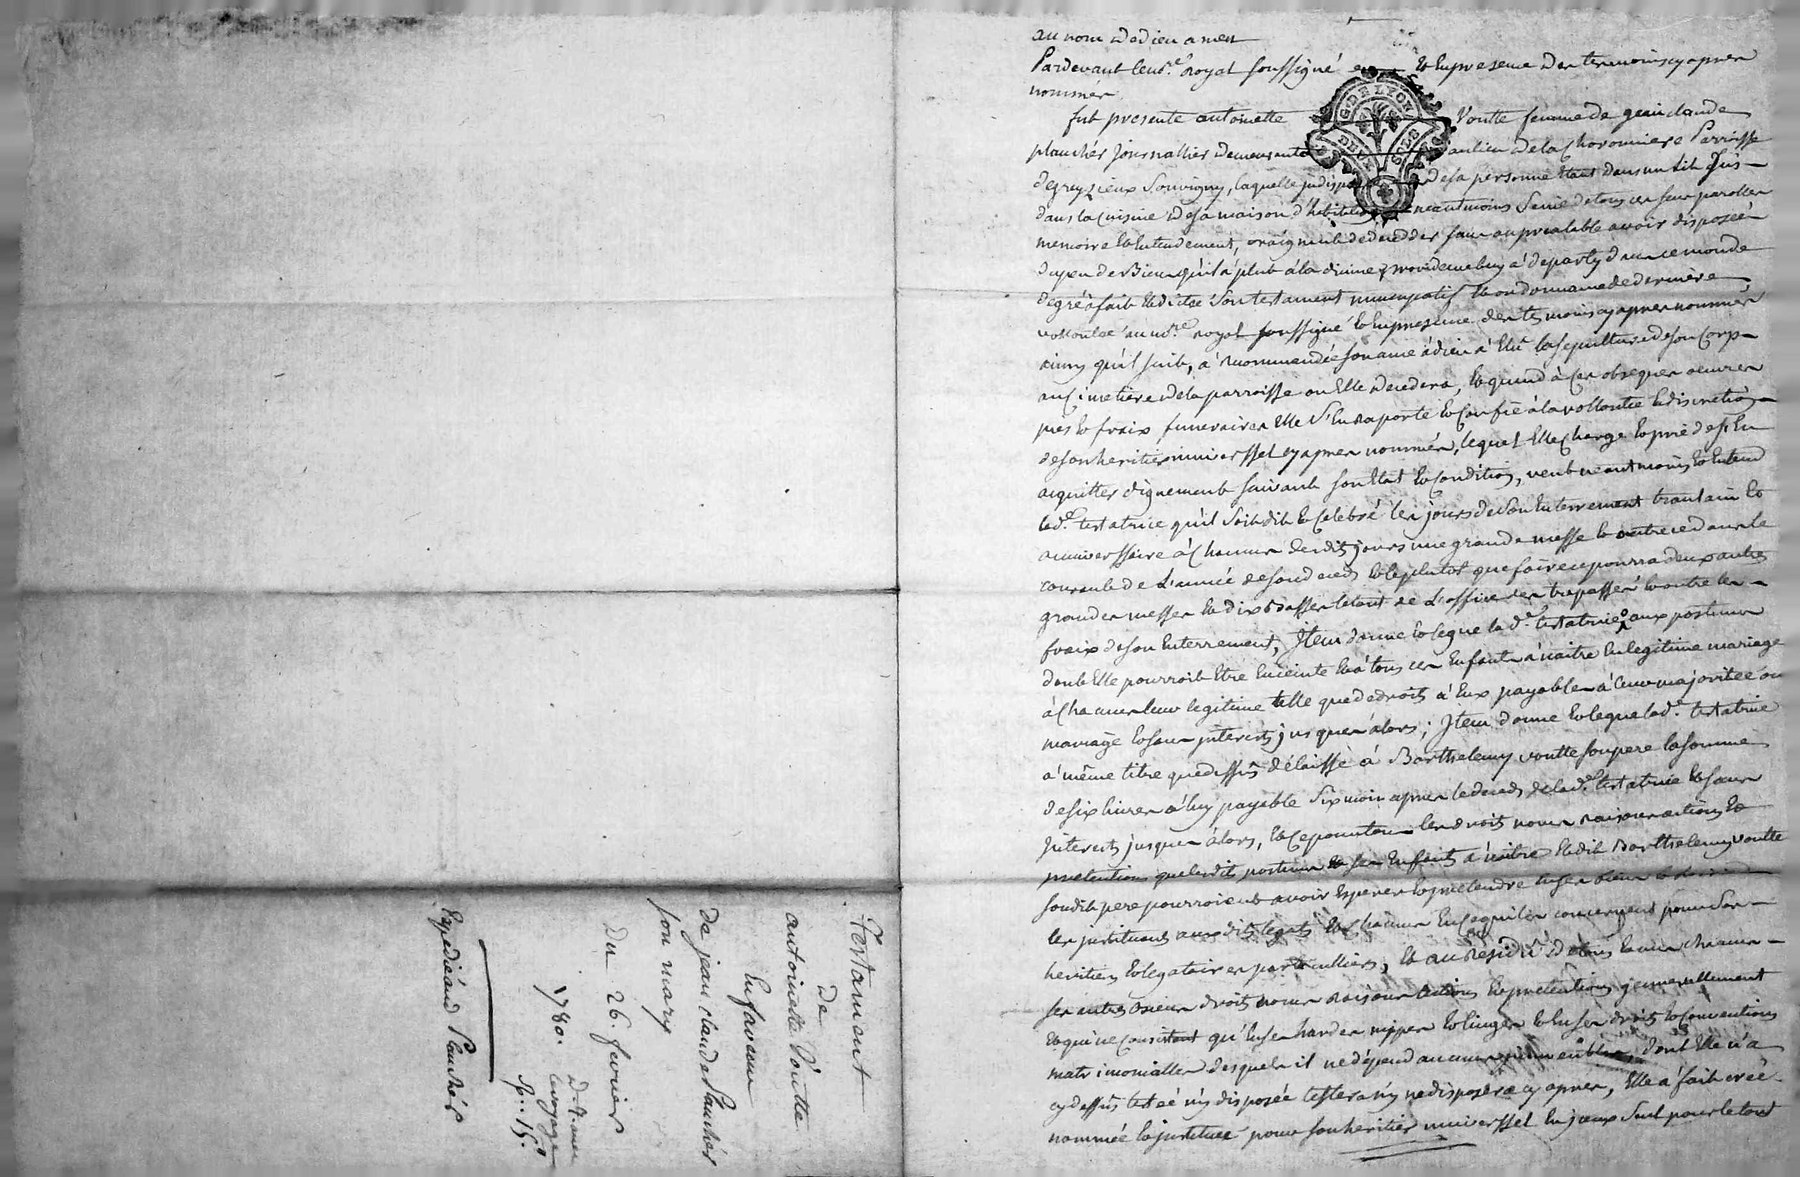 au nom de dieu amen
Pardevant le no.re royal soussigné et En presence des temoins cy apres
nommés
fut presente antoinette Voutte femme de jean claude
planchés journallier demeurante au lieu de la Charonniere Parroisse
de greyzieux Souvigny, laquelle jndisposée de sa personne Etant dans un lit Gis-
dans la Cuisine de sa maison d'habitation neantmoins Saine de tous ses sens parolles
memoire Et Entendement, craignant de deceder sans au prealable avoir disposée
du peu de Bien qu'il a plut à la divine providence luy à departy dans ce monde
de gré à fait Et dicté Son testament nuncupatif Et ordonnance de derniere
vollonté au no.re royal soussigné Et En presence des temoins cy apres nommés
ainsy qu'il suit, à recommandée son ame à dieu à Elu la sepulture de son Corp-
au Cimetiere de la parroisse ou Elle decedera, Et quand à Ses obseques oeuvres
pies Et fraix funeraires Elle S'En raporte Et Confie à la vollontée Et discretion
de son heritier universsel cy apres nommés, lequel Elle Charge Et prie de s'En
acquitter dignement suivant son Etat Et Condition, veut neantmoins Et Entend
la d.e testatrice qu'il Soit dit Et Celebré les jours de Son Enterrement trantain Et
anniverssaire à Chacun desdits jours une grande messe Et outre ce dans le
courant de L'année de son decés Et le plutot que faire ce pourra deux autres
grandes messes Et dix basses le tout de L'office des trepassés Et outre les-
fraix de son Enterrement, Jtem donne Et legue la d.e testatrice aux postumes
dont Elle pourroit Etre Enceinte Et à tous ses Enfants à naitre En legitime mariage
à Chacun leur legitime telle que de droits à Eux payable à leur majoritée ou
mariage Et sans jnterests jusques alors; Jtem donne Et legue la d.e testatrice
à même titre que dessus délaisse à Barthelemy voutte son pere la Somme
de six livres à luy payable Six mois apres le decés de la d.e testatrice Et sans
jnterests jusques alors, Et ce pour tous les droits noms raisons actions Et
pretentions que lesdits postumes Et ses Enffants à naitre Et dit Barthelemy voutte
son dit pere pourroient avoir Esperer Et pretendre En ses biens
les jnstituants auxdits legats Et Chacun En Ce qui les concernent pour Ses-
heritiers Et legataires particulliers, Et au Residû de tous Et uns chacuns-
ses autres Biens droits noms raisons actions Et pretentions generallement
Et qui ne Consistent qu'En ses hardes nippes Et linges Et En ses droits Et Conventions
matrimonialles desquels il ne dépend aucuns immeubles, dont Elle n'a
cy dessus testée n'y disposée testera n'y ne disposera cy apres, Elle à fait créée
nommée Et jnstituée pour son heritier universsel En jceux Seul pour le tout
Testament
De
antoinette Voutte
En faveur
De jean claude Planchés
son mary
Du 26. fevrier
1780.
Expedié au d Planchés